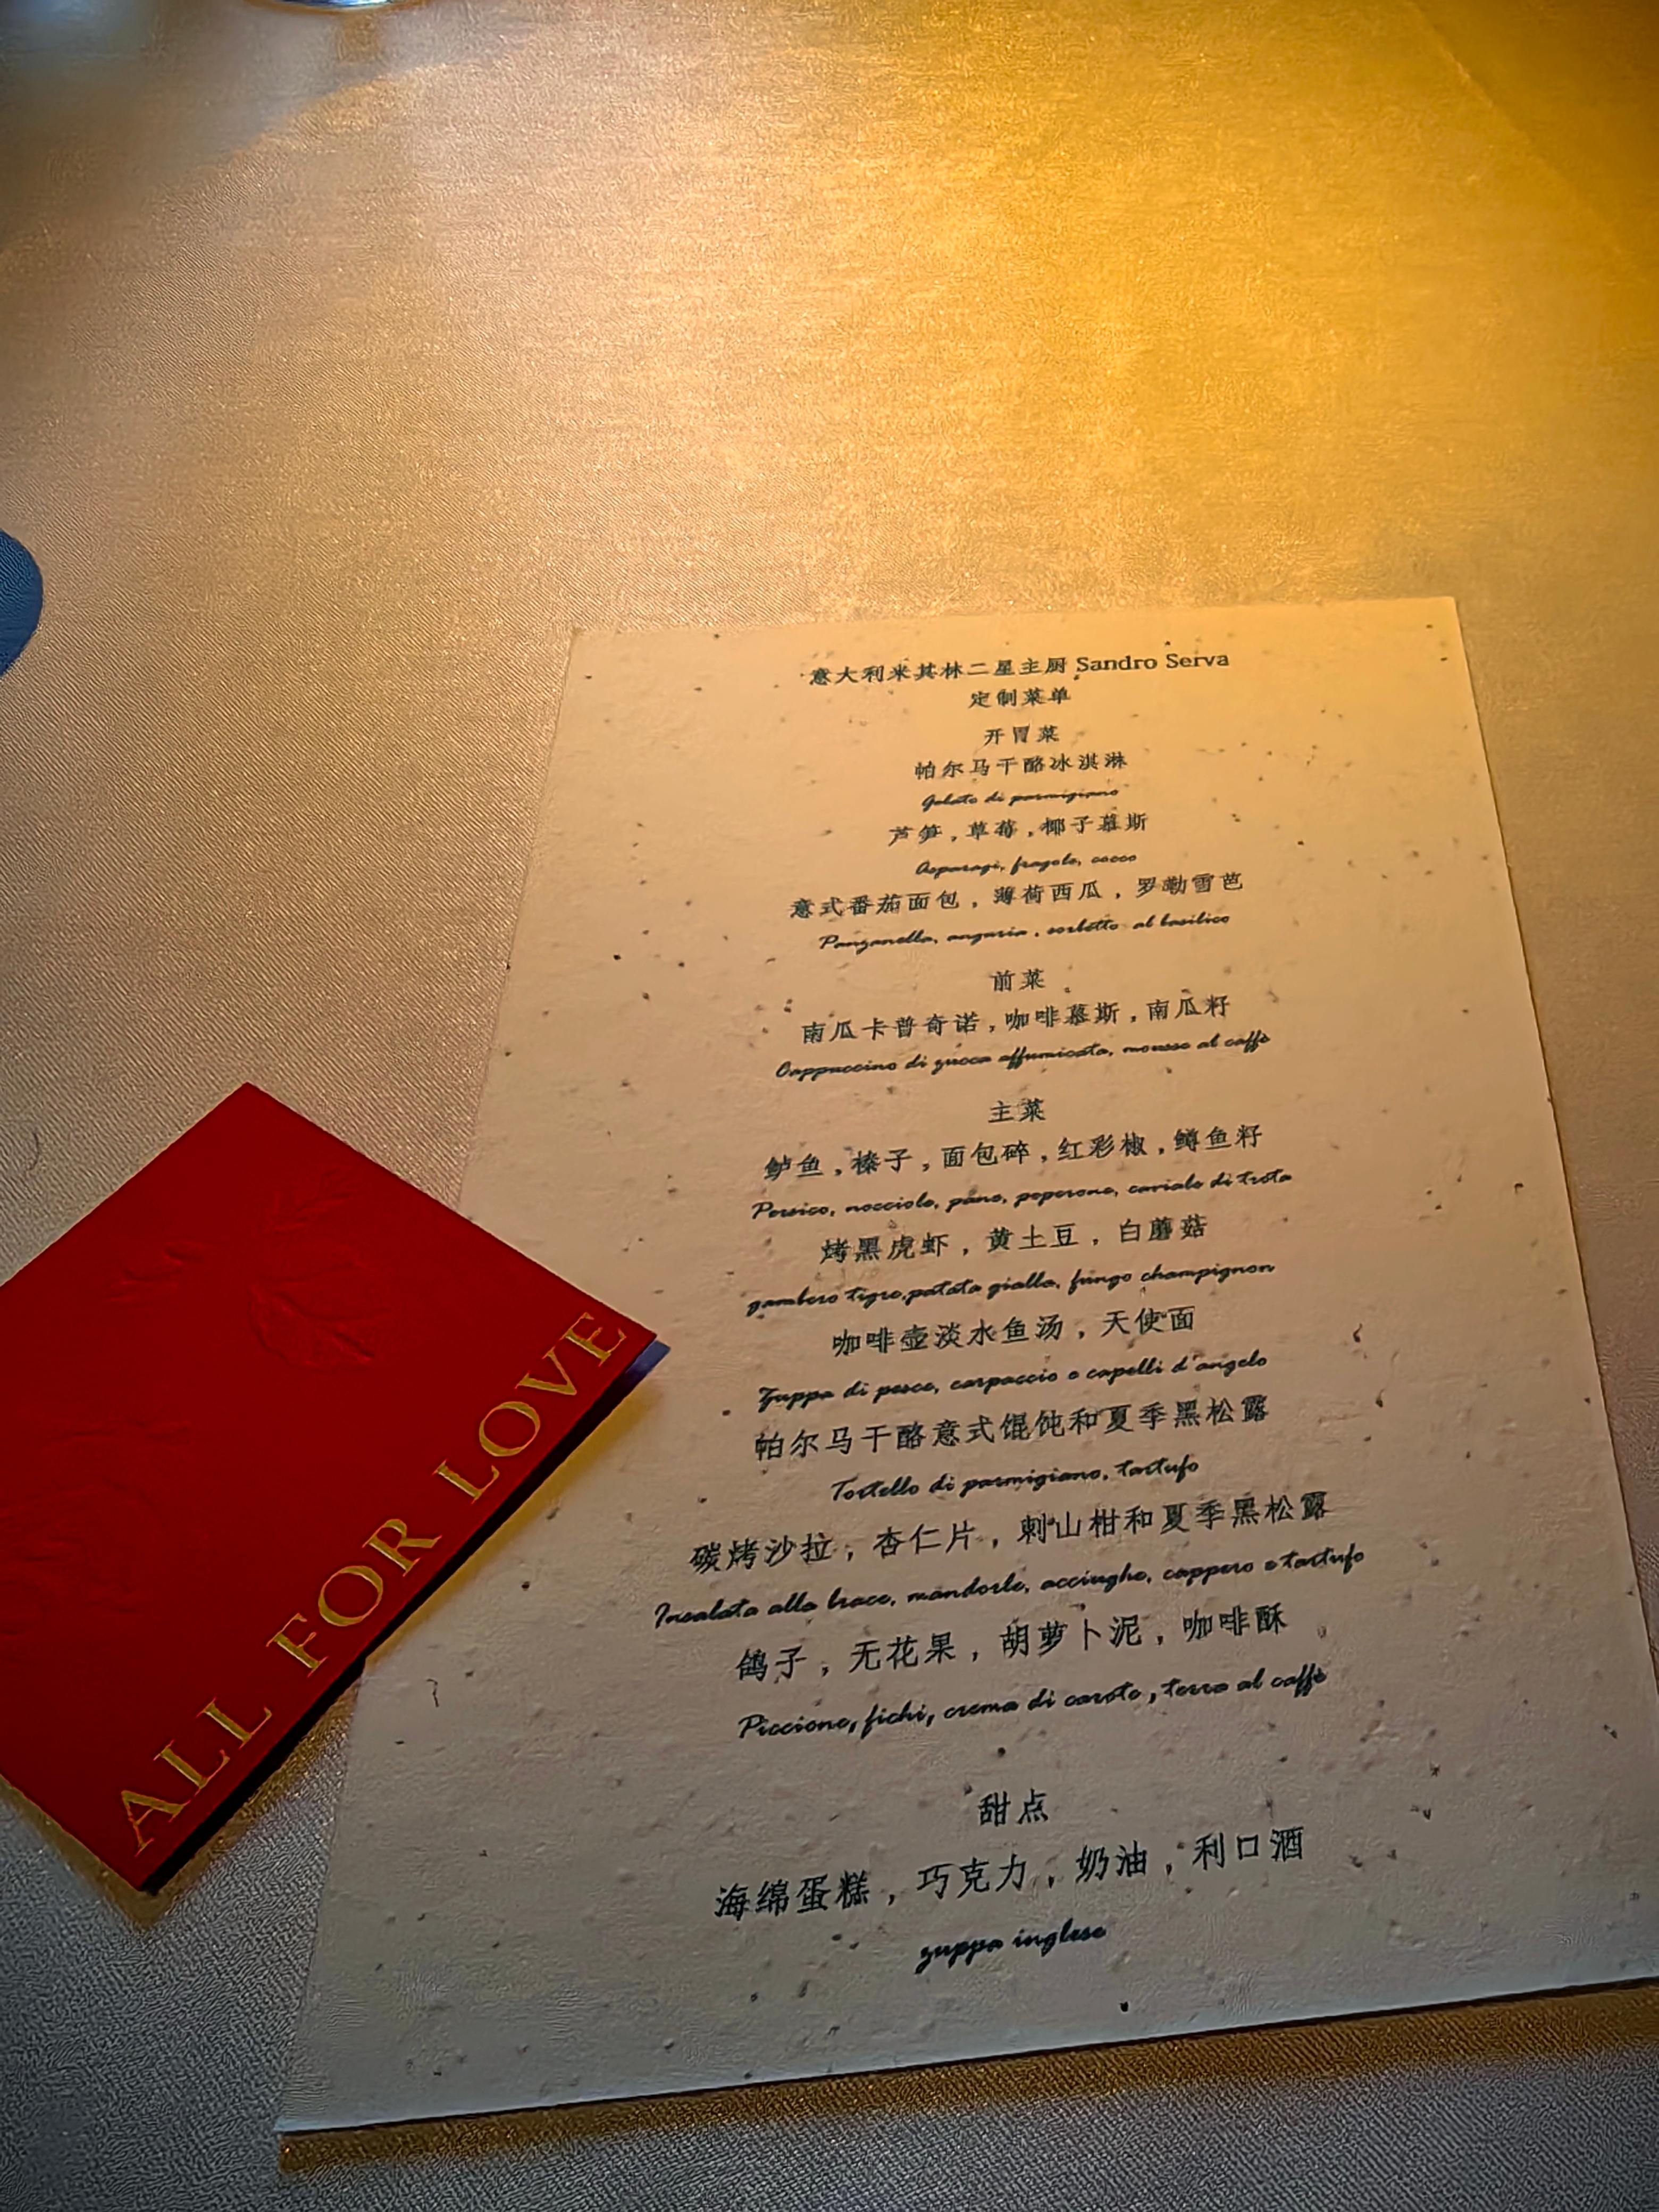 意大利米其林二星主厨 Sandro Serva
定制菜单
开胃菜
帕尔马干酪冰淇淋
Gelato di parmigiano
芦笋，草莓，椰子慕斯
Asparagi, fragole, cocco
意式番茄面包，薄荷西瓜，罗勒雪芭
Panzanella, anguria, sorbetto al basilico
前菜
南瓜卡普奇诺，咖啡慕斯，南瓜籽
Cappuccino di zucca affumicata, mousse al caffè
主菜
鲈鱼，榛子，面包碎，红彩椒，鳟鱼籽
Persico, nocciole, pane, peperone, caviale di trota
烤黑虎虾，黄土豆，白蘑菇
gambero tigre, patata gialla, fungo champignon
咖啡壶淡水鱼汤，天使面
Zuppa di pesce, carpaccio e capelli d'angelo
帕尔马干酪意式馄饨和夏季黑松露
Tortello di parmigiano, tartufo
碳烤沙拉，杏仁片，刺山柑和夏季黑松露
Insalata alla brace, mandorle, acciughe, cappero e tartufo
鸽子，无花果，胡萝卜泥，咖啡酥
Piccione, fichi, crema di carote, terra al caffè
甜点
海绵蛋糕，巧克力，奶油，利口酒
zuppa inglese
ALL FOR LOVE